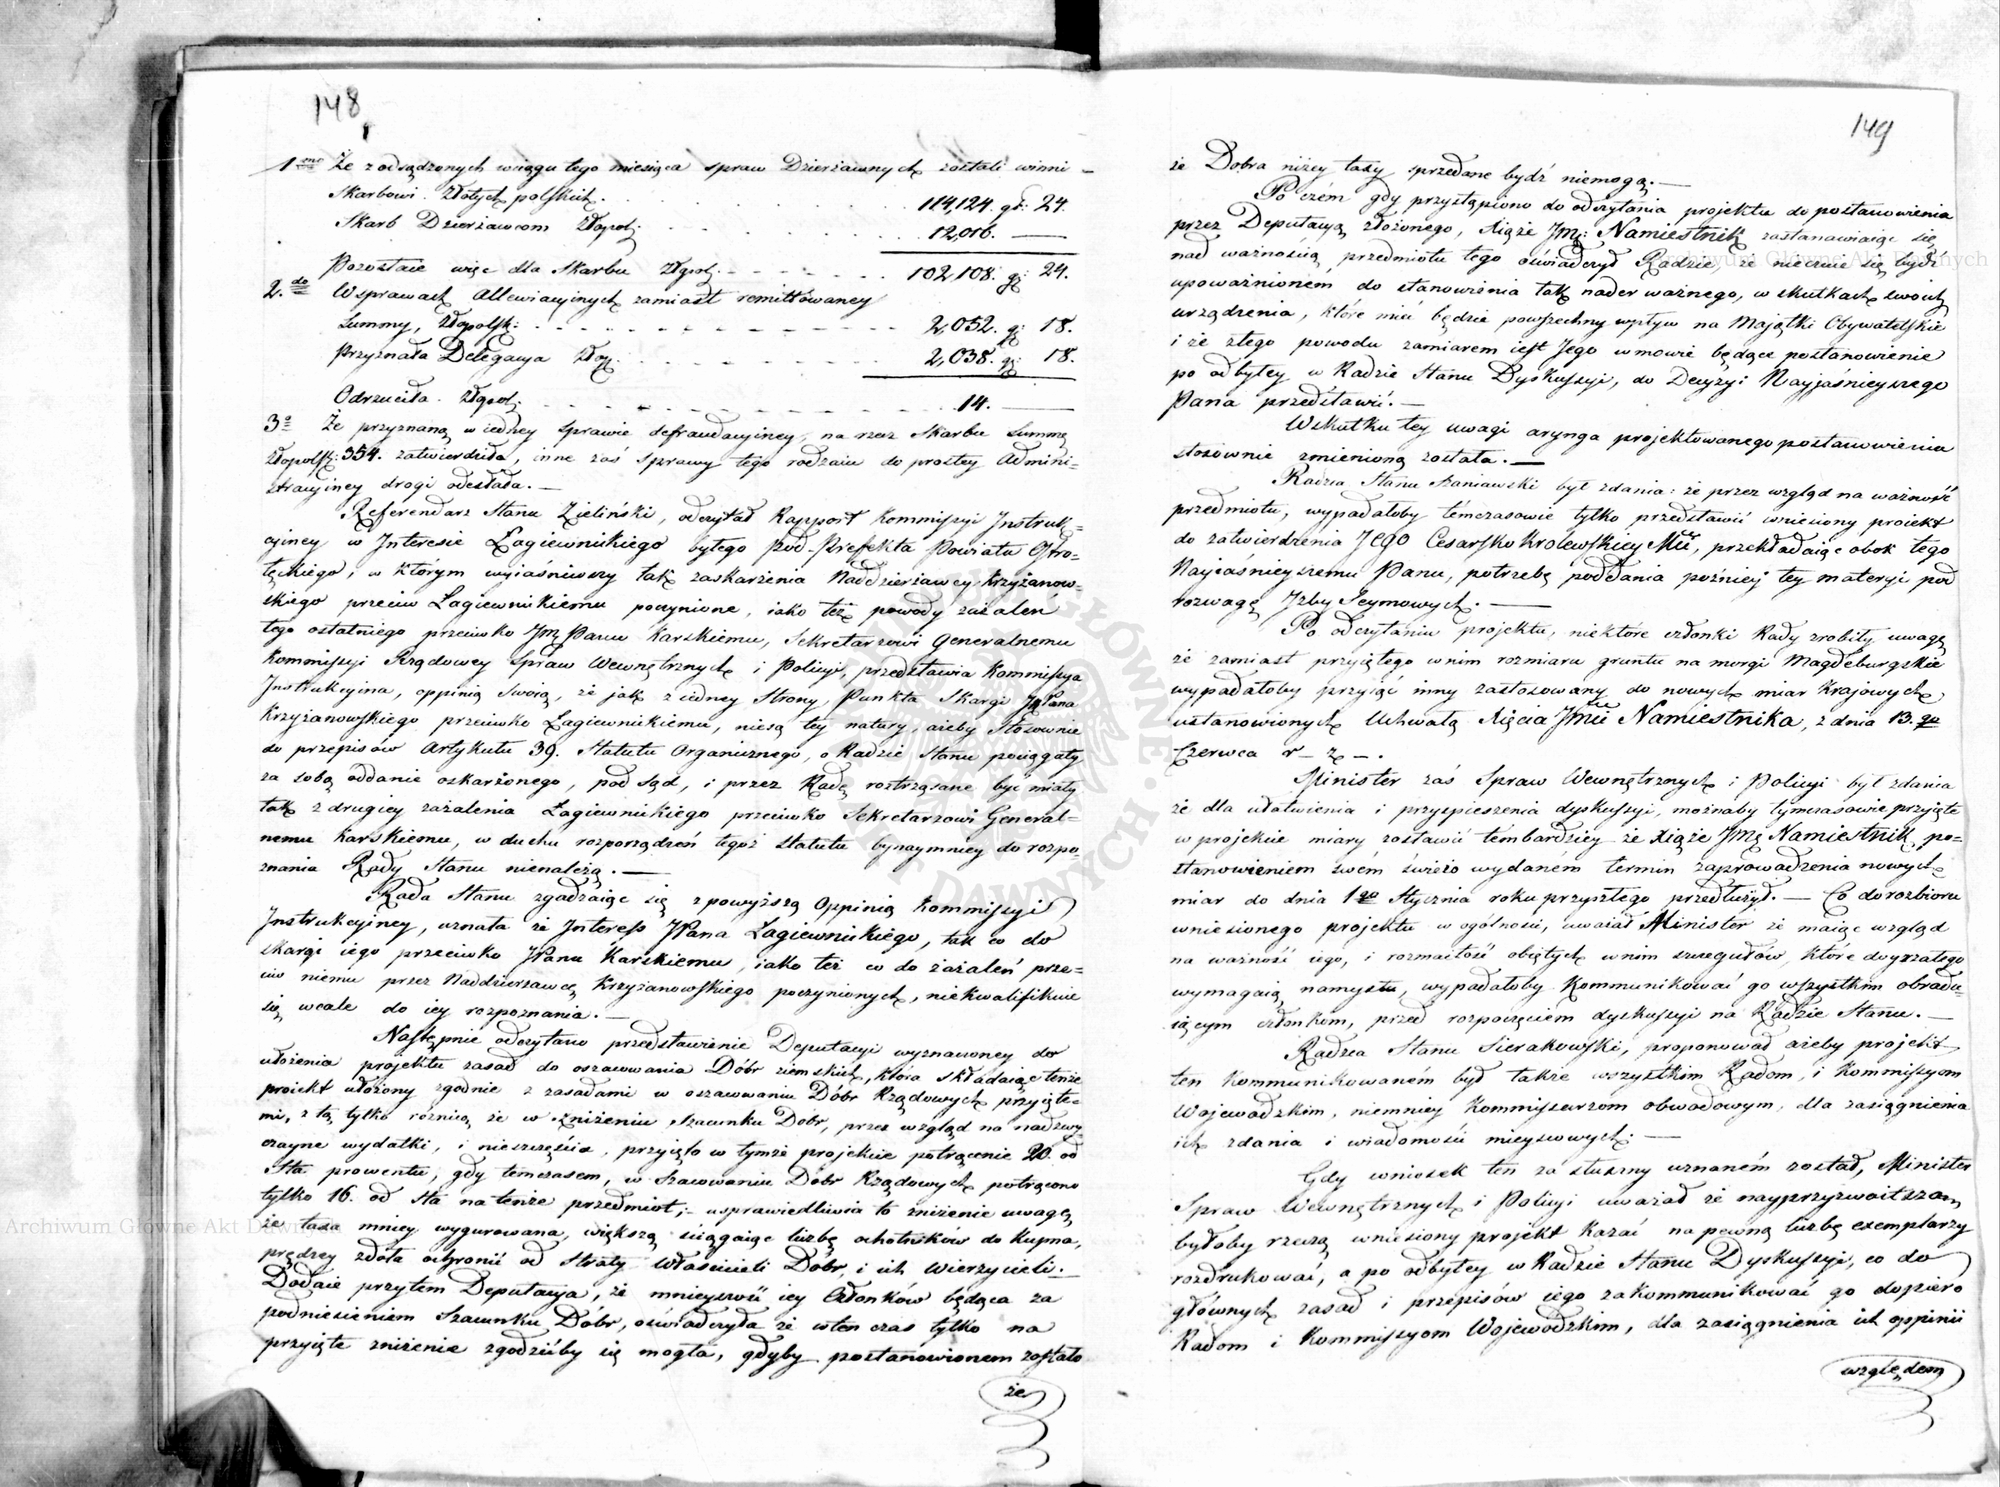 148
1mo Że z odsądzonych wciągu tego miesiąca spraw Dzierżawnych zostali winni
Skarbowi Złotych polskich. . . . . . . . 114,124. gr: 24.
Skarb Dzierżawcom Złpol: . . . . . . . 12,016. —
Pozostaie więc dla Skarbu Złpol: - - - - - 102,108. gr: 24.
2.do W sprawach Allewiacyjnych zamiast remittowaney
Summy, Złopolsk: - - - - - - - - - - - 2,052. gr: 18.
Przyznała Delegacya Złp. - - - - - - - 2,038. gr: 18.
Odrzuciła. Złpol: - - - - - - - - - - - 14. —
3o Że przyznaną w iedney sprawie defraudacyiney, na rzecz Skarbu Summę
Złopolsk: 354. zatwierdziła, inne zaś sprawy tego rodzaiu do prostey Admini-
stracyiney drogi odesłała. —
Referendarz Stanu Zieliński, odczytał Rapport Kommissyi Instruk-
cyiney w Interesie Łagiewnickiego byłego Pod-Prefekta Powiatu Ostro-
łęckiego, w którym wyiaśniwszy tak zaskarżenia Naddzierżawcy Krzyżanow-
skiego przeciw Łagiewnickiemu poczynione, iako też powody zażaleń
tego ostatniego przeciwko JmPanu Karskiemu, Sekretarzowi Generalnemu
Kommissyi Rządowey Spraw Wewnętrznych i Policyi, przedstawia Kommissya
Instrukcyina, oppinią swoią, że jak z iedney Strony, Punkta Skargi JPana
Krzyżanowskiego przeciwko Łagiewnickiemu, niesą tey natury, ażeby stosownie
do przepisów Artykułu 39. Statutu Organicznego, o Radzie Stanu pociągały
za sobą oddanie oskarżonego, pod sąd, i przez Radę roztrząsane być miały
tak z drugiey zażalenia Łagiewnickiego przeciwko Sekretarzowi General-
nemu Karskiemu, w duchu rozporządzeń tegoż statutu bynaymniey do rozpo-
znania Rady Stanu nienależą. —
Rada Stanu zgadzaiąc się z powyższą Oppinią Kommissyi
Instrukcyiney, uznała że Interess JPana Łagiewnickiego, tak co do
skargi iego przeciwko JPanu Karskiemu, iako też co do zażaleń prze-
ciw niemu przez Naddzierżawcę Krzyżanowskiego poczynionych, niekwalifikuie
się wcale do iey rozpoznania. —
Następnie odczytano przedstawienie Deputacyi wyznaczoney do
ułożenia projektu zasad do oszacowania Dóbr ziemskich, która składaiąc tenże
proiekt ułożony zgodnie z zasadami w oszacowaniu Dóbr Rządowych przyięte-
mi, z tą tylko różnicą że w zniżeniu Szacunku Dóbr, przez wzgląd na nadzwy-
czayne wydatki, i nieszczęścia, przyięto w tymże projekcie potrącenie 20. od
Sta prowentu, gdy tem czasem, w Szacowaniu Dóbr Rządowych potrącono
tylko 16. od Sta na tenże przedmiot; - usprawiedliwia to zniżenie uwagą
że taxa mniey wygurowana, większą ściągaiąc liczbę ochotników do kupna,
prędzey zdoła ochronić od Straty właścicieli Dóbr, i ich wierzycieli. —
Dodaie przytem Deputacya, że mnieyszość iey Członków będąca za
podniesieniem Szacunku Dóbr, oświadczyła że wten czas tylko na
przyięte zniżenie zgodzićby się mogła, gdyby postanowionem zostało
że
149
że Dobra niżey taxy sprzedane bydź niemogą. —
Po czém gdy przystąpiono do odczytania projektu do postanowienia
przez Deputacyą złożonego, Xiąże Jmć: Namiestnik zastanawiaiąc się
nad ważnością przedmiotu tego oświadczył Radzie, że nieczuie się bydź
upoważnionem do stanowienia tak nader ważnego, w skutkach swoich
urządzenia, które mieć będzie powszechny wpływ na Majątki Obywatelskie
i że z tego powodu zamiarem iest Jego w mowie będące postanowienie
po odbytey w Radzie Stanu Dyskussyi, do Decyzyi Nayjaśnieyszego
Pana przedstawić. —
Wskutku tey uwagi arynga projektowanego postanowienia
stosownie zmienioną została. —
Radzca Stanu Szaniawski był zdania: że przez wzgląd na ważność
przedmiotu, wypadałoby témczasowie tylko przedstawić wniesiony proiekt
do zatwierdzenia JEGO Cesarsko Krolewskiey Mći, przekładaiąc obok tego
Nayiaśnieyszemu Panu, potrzebę poddania późniey tey materyi pod
rozwagę Izby Seymowych. —
Po odczytaniu projektu, niektóre członki Rady zrobiły uwagę
że zamiast przyiętego w nim rozmiaru gruntu na morgi Magdeburgskie
wypadałoby przyiąć inny zastosowany do nowych miar Krajowych,
ustanowionych Uchwałą Xięcia Jmći Namiestnika, z dnia 13.go
Czerwca r – z – .
Minister zaś Spraw Wewnętrznych i Policyi był zdania
że dla ułatwienia i przyspieszenia dyskussyi, możnaby tymczasowie przyięte
w projekcie miary zostawić tembardziey że Xiąże Jmć Namiestnik po-
stanowieniem swém świeżo wydaném termin zaprowadzenia nowych
miar do dnia 1go Stycznia roku przyszłego przedłużył. — Co do rozbioru
wniesionego projektu w ogólności, uważał Minister że maiąc wzgląd
na ważność iego, i rozmaitość obiętych w nim szczegułów, które doyrzałego
wymagaią namysłu, wypadałoby Kommunikować go wszystkim obradu-
iącym członkom, przed rozpoczęciem dyskussyi na Radzie Stanu. —
Radzca Stanu Sierakowski, proponował ażeby projekt
ten kommunikowaném był także wszystkim Radom, i Kommissyom
Wojewodzkim, niemniey Kommissarzom obwodowym, dla zasiągnienia
ich zdania i wiadomości mieyscowych. —
Gdy wniosek ten za słuszny uznaném został, Minister
Spraw Wewnętrznych i Policyi uważał że nayprzyzwoitszą
byłoby rzeczą wniesiony projekt kazać na pewną liczbę exemplarzy
rozdrukować, a po odbytey w Radzie Stanu Dyskussyi, co do
głównych zasad i przepisów iego zakommunikować go dopiero
Radom i Kommissyom Wojewodzkim, dla zasiągnienia ich oppinii
względem
Archiwum Główne Akt Dawnych